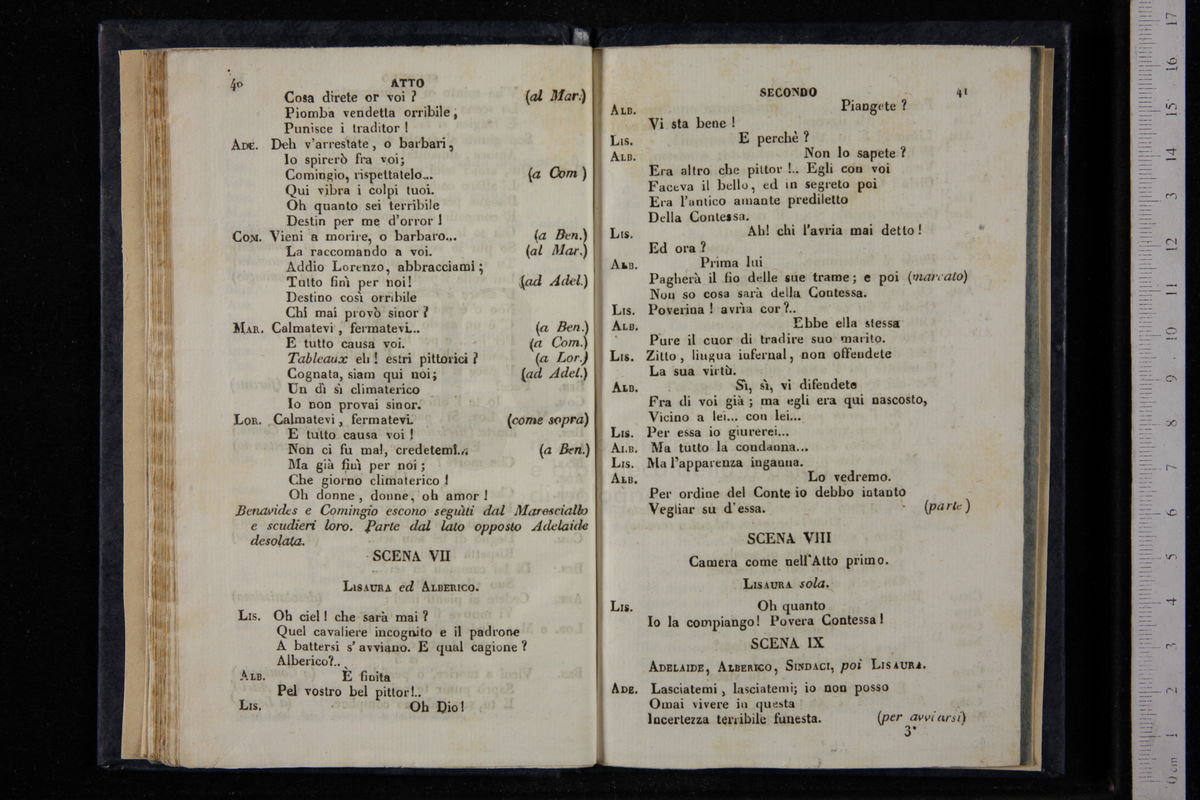 40 ATTO
Cosa direte or voi ? (al Mar.)
Piomba vendetta orribile,
Punisce i traditor !
ADE. Deh v'arrestate, o barbari,
Io spirerò fra voi;
Comingio, rispettatelo... (a Com )
Qui vibra i colpi tuoi.
Oh quanto sei terribile
Destin per me d'orror !
COM. Vieni a morire, o barbaro... (a Ben.)
La raccomando a voi. (al Mar.)
Addio Lorenzo, abbracciami;
Tutto finì per noi! (ad Adel.)
Destino così orribile
Chi mai provò sinor ?
MAR. Calmatevi, fermatevi... (a Ben.)
E tutto causa voi. (a Com.)
Tableaux eh ! estri pittorici ? (a Lor.)
Cognata, siam qui noi; (ad Adel.)
Un dì sì climaterico
Io non provai sinor.
LOR. Calmatevi, fermatevi. (come sopra)
E tutto causa voi !
Non ci fu mal, credetemi... (a Ben.)
Ma già finì per noi ;
Che giorno climaterico !
Oh donne, donne, oh amor !
Benavides e Comingio escono seguìti dal Maresciallo
e scudieri loro. Parte dal lato opposto Adelaide
desolata.
SCENA VII
LISAURA ed ALBERICO.
LIS. Oh ciel ! che sarà mai ?
Quel cavaliere incognito e il padrone
A battersi s'avviano. E qual cagione ?
Alberico?..
ALB. È finita
Pel vostro bel pittor!..
LIS. Oh Dio!
SECONDO 41
ALB. Piangete ?
Vi sta bene !
LIS. E perchè ?
ALB. Non lo sapete ?
Era altro che pittor !.. Egli con voi
Faceva il bello, ed in segreto poi
Era l'antico amante prediletto
Della Contessa.
LIS. Ah! chi l'avria mai detto !
Ed ora ?
ALB. Prima lui
Pagherà il fio delle sue trame; e poi (marcato)
Non so cosa sarà della Contessa.
LIS. Poverina ! avrìa cor ?..
ALB. Ebbe ella stessa
Pure il cuor di tradire suo marito.
LIS. Zitto, lingua infernal, non offendete
La sua virtù.
ALB. Sì, sì, vi difendete
Fra di voi già ; ma egli era qui nascosto,
Vicino a lei... con lei...
LIS. Per essa io giurerei...
ALB. Ma tutto la condanna...
LIS. Ma l'apparenza inganna.
ALB. Lo vedremo.
Per ordine del Conte io debbo intanto
Vegliar su d'essa. (parte)
SCENA VIII
Camera come nell'Atto primo.
LISAURA sola.
LIS. Oh quanto
Io la compiango! Povera Contessa !
SCENA IX
ADELAIDE, ALBERICO, SINDACI, poi LISAURA.
ADE. Lasciatemi, lasciatemi; io non posso
Omai vivere in questa
Incertezza terribile funesta. (per avviarsi)
3*
0 cm 1 2 3 4 5 6 7 8 9 10 11 12 13 14 15 16 17